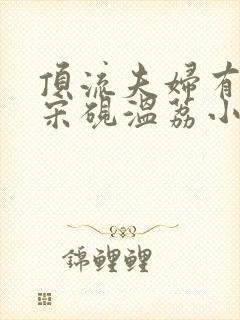 頂流夫婦有
宋硯溫荔小
錦鯉鯉